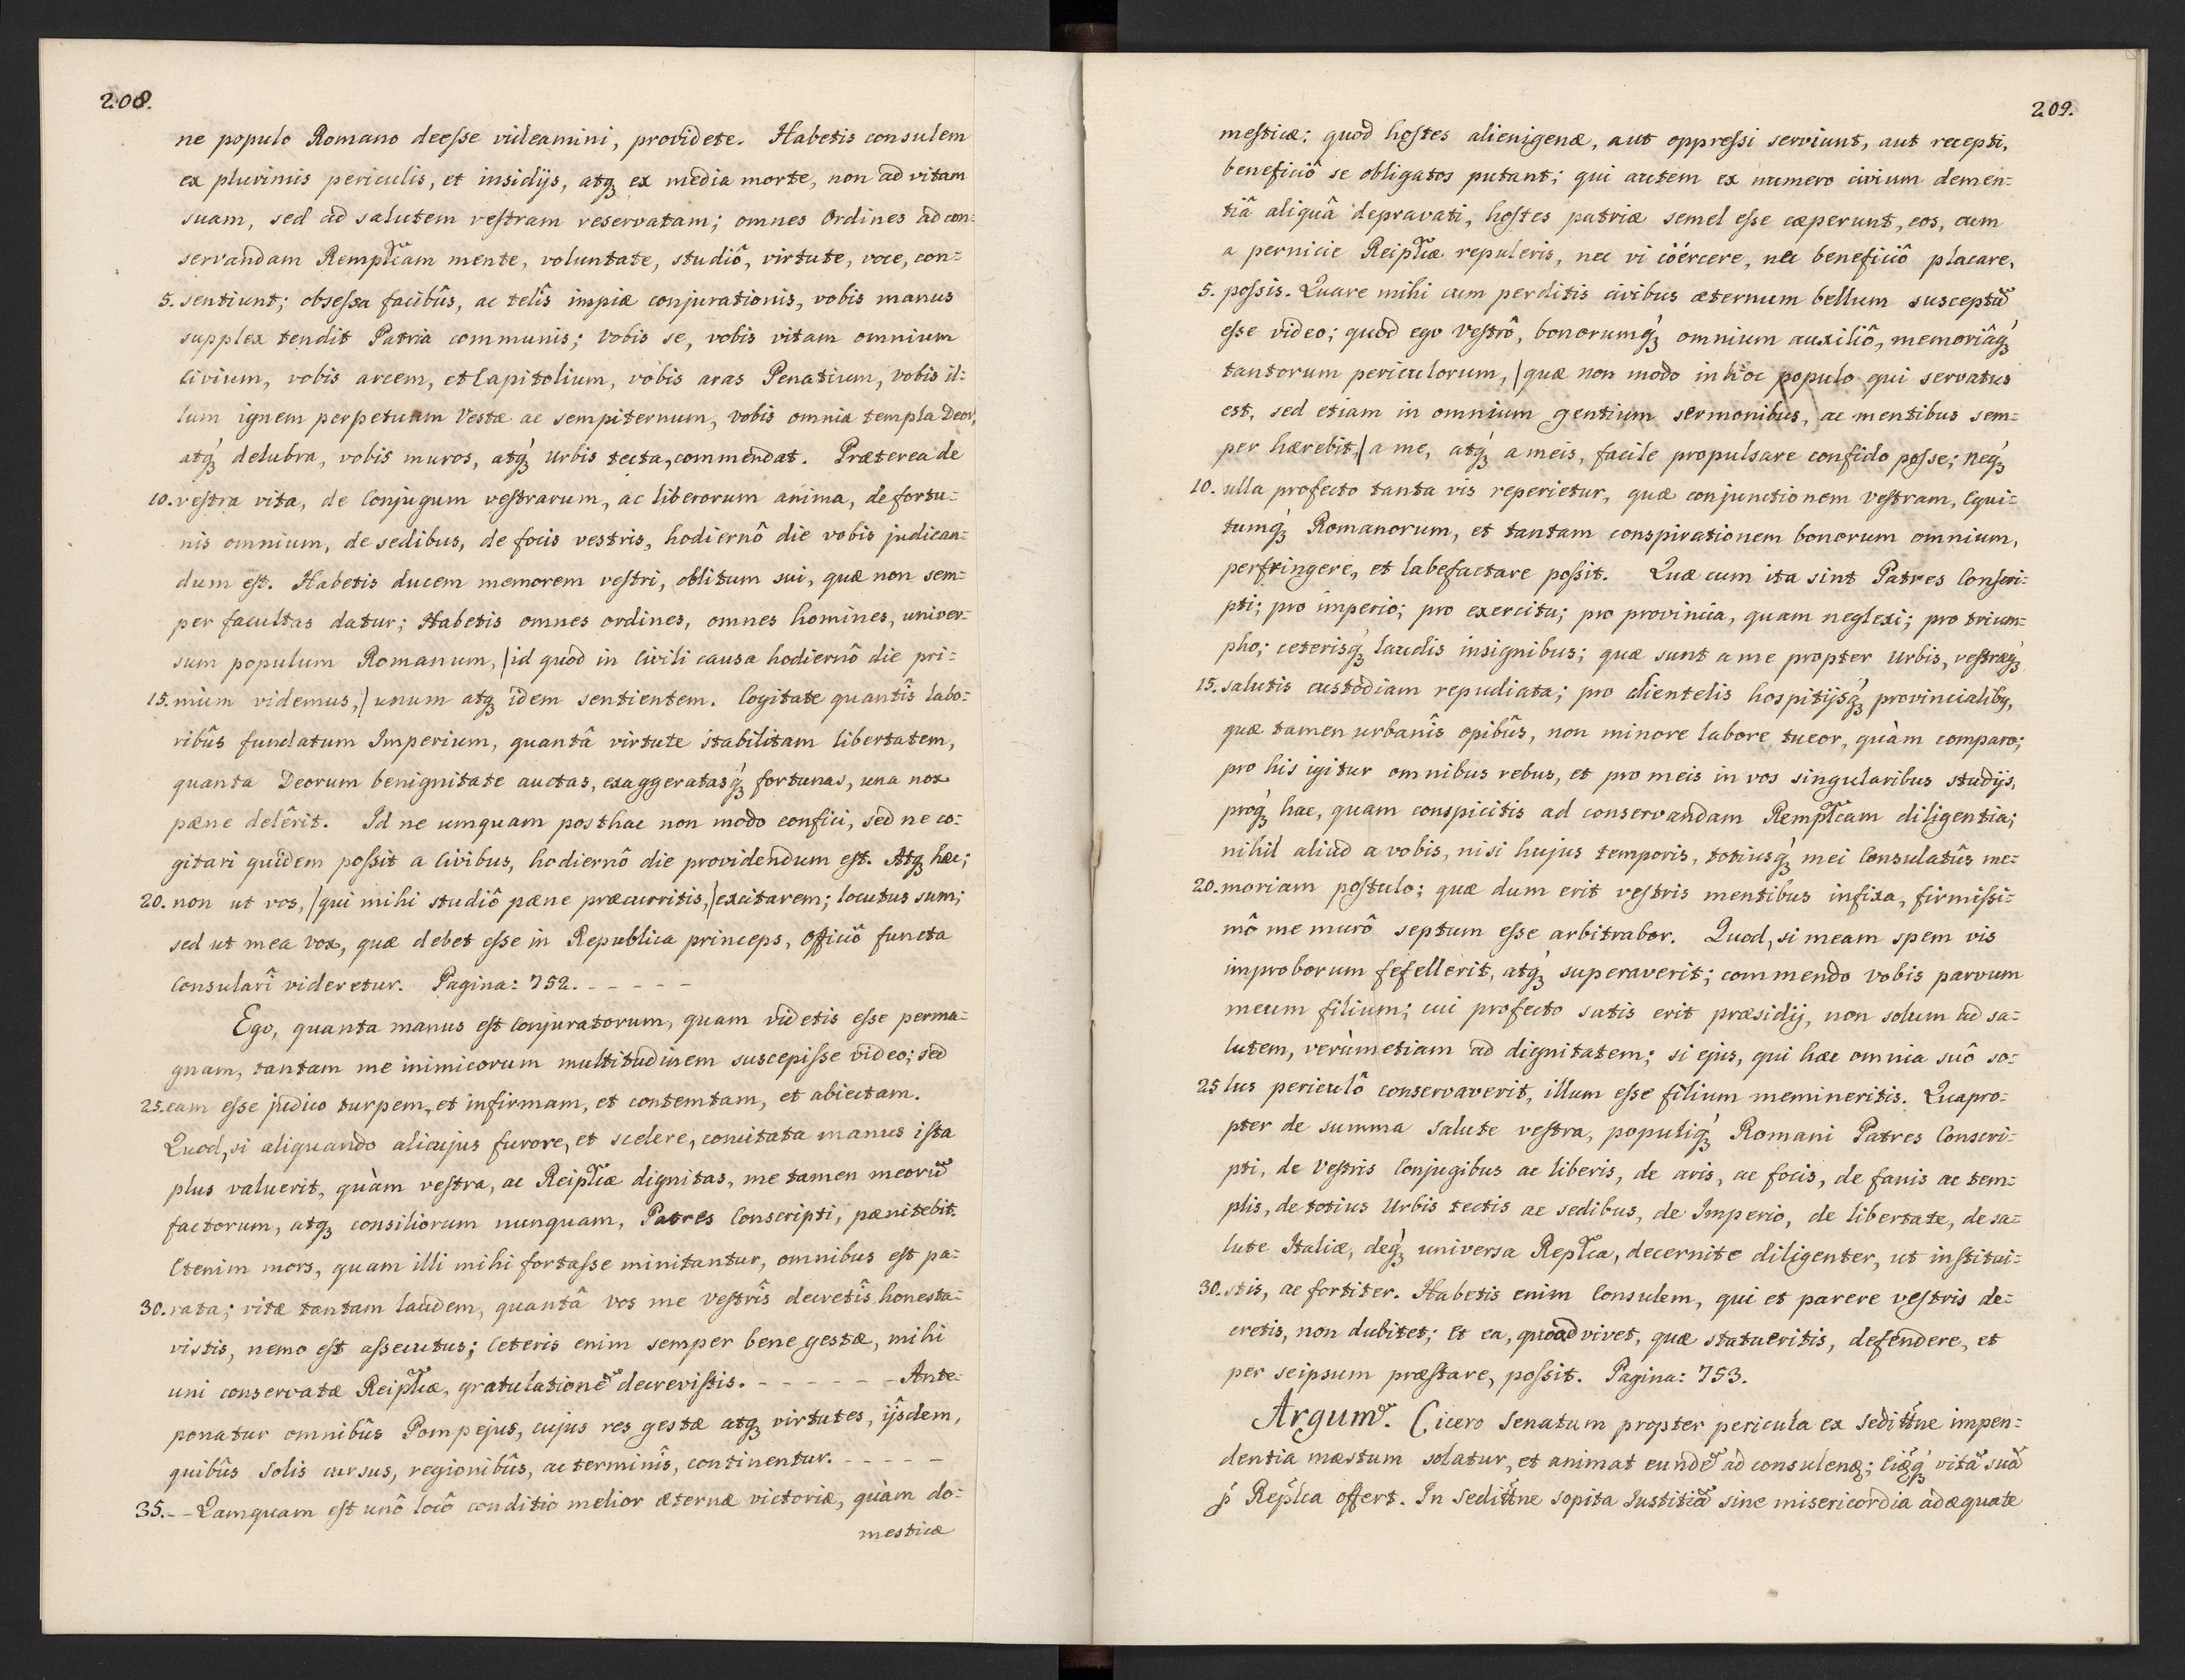 208.
ne populo Romano deesse videamini, providete. Habetis consulem
ex plurimis periculis, et insidijs, atq; ex media morte, non ad vitam
suam, sed ad salutem vestram reservatam; omnes Ordines ad con=
servandam Remplĩcam mente, voluntate, studiô, virtute, voce, con=
5. sentiunt; obsessa facibûs, ac telîs impiæ conjurationis, vobis manus
supplex tendit Patria communis; vobis se, vobis vitam omnium
Civium, vobis arcem, et Capitolium, vobis aras Penatium, vobis il=
lum ignem perpetuum Vestæ ac sempiternum, vobis omnia templa Deor,
atq́; delubra, vobis muros, atq́; Urbis tecta, commendat. Præterea de
10. vestra vita, de Conjugum vestrarum, ac liberorum anima, de fortu=
nis omnium, de sedibus, de focis vestris, hodiernô die vobis judican=
dum est. Habetis ducem memorem vestri, oblitum sui, quæ non sem=
per facultas datur; Habetis omnes ordines, omnes homines, univer=
sum populum Romanum, /id quod in Civili causa hodiernô die pri=
15. mùm videmus,/ unum atq; idem sentientem. Cogitate quantîs labo=
ribûs fundatum Imperium, quantâ virtute stabilitam libertatem,
quanta Deorum benignitate auctas, exaggeratasq́; fortunas, una nox
pæne delêrit. Id ne umquam posthac non modo confici, sed ne co=
gitari quidem possit a Civibus, hodiernô die providendum est. Atq; hæc;
20. non ut vos, /qui mihi studiô pæne præcurritis,/ excitarem; locutus sum;
sed ut mea vox, quæ debet esse in Republica princeps, Officiô functa
Consularî videretur. Pagina: 752. - - - - -
Ego, quanta manus est Conjuratorum, quam videtis esse perma=
gnam, tantam me inimicorum multitudinem suscepisse video; sed
25. eam esse judico turpem, et infirmam, et contemtam, et abiectam.
Quod, si aliquando alicujus furore, et scelere, concitata manus ista
plus valuerit, quàm vestra, ac Reiplĩcæ dignitas, me tamen meorũ
factorum, atq; consiliorum nunquam, Patres Conscripti, pænitebit.
Etenim mors, quam illi mihi fortasse minitantur, omnibus est pa=
30. rata; vitæ tantam laudem, quantâ vos me vestrîs decretîs honesta=
vistis, nemo est assecutus; Ceteris enim semper bene gestæ, mihi
uni conservatæ Reiplĩcæ, gratulationẽ decrevistis. - - - - - - Ante=
ponatur omnibûs Pompejus, cujus res gestæ atq; virtutes, ijsdem,
quibûs Solis cursus, regionibûs, ac terminîs, continentur. - - - - -
35. - - Quamquam est unô locô conditio melior æternæ victoriæ, quàm do=
mesticæ
209.
mesticæ: quod hostes alienigenæ, aut oppressi serviunt, aut recepti,
beneficiô se obligatos putant; qui autem ex numero civium demen=
tiâ aliquâ depravati, hostes patriæ semel esse cæperunt, eos, cum
a pernicie Reiplĩcæ repuleris, nec vi coërcere, nec beneficiô placare,
5. possis. Quare mihi cum perditis civibus æternum bellum susceptũ
esse video; quod ego Vestrô, bonorumq́; omnium auxiliô, memoriâq́;
tantorum periculorum, /quæ non modo in hoc populo qui servatus
est, sed etiam in omnium gentium sermonibus, ac mentibus sem=
per hærebit,/ a me, atq́; a meis, facile propulsare confido posse; neq́;
10. ulla profecto tanta vis reperietur, quæ conjunctionem vestram, Equi=
tumq́; Romanorum, et tantam conspirationem bonorum omnium,
perfringere, et labefactare possit. Quæ cum ita sint Patres Conscri=
pti; pro imperio; pro exercitu; pro provincia, quam neglexi; pro trium=
pho; ceterisq́; laudis insignibus; quæ sunt a me propter Urbis, vestræq́;
15. salutis custodiam repudiata; pro clientelis hospitijsq́; provincialibq,
quæ tamen urbanîs opibûs, non minore labore tueor, quàm comparo;
pro his igitur omnibus rebus, et pro meis in vos singularibus studijs,
proq́; hac, quam conspicitis ad conservandam Remplĩcam diligentia;
nihil aliud a vobis, nisi hujus temporis, totiusq́; mei Consulatûs me=
20. moriam postulo; quæ dum erit vestris mentibus infixa, firmissi=
mô me murô septum esse arbitrabor. Quod, si meam spem vis
improborum fefellerit, atq́; superaverit; commendo vobis parvum
meum filium; cui profecto satis erit præsidij, non solum ad sa=
lutem, verùm etiam ad dignitatem; si ejus, qui hæc omnia suô so=
25 lus periculô conservaverit, illum esse filium memineritis. Quapro=
pter de summa salute vestra, populiq́; Romani Patres Conscri=
pti, de Vestris Conjugibus ac liberis, de aris, ac focis, de fanis ac tem=
plis, de totius Urbis tectis ac sedibus, de Imperio, de libertate, de sa=
lute Italiæ, deq́; universa Replĩca, decernite diligenter, ut institui=
30. stis, ac fortiter. Habetis enim Consulem, qui et parere vestris de=
cretis, non dubitet; Et ea, quoad vivet, quæ statueritis, defendere, et
per seipsum præstare, possit. Pagina: 753.
Argum̃. Cicero Senatum propter pericula ex seditt̃ne impen=
dentia mæstum solatur, et animat eundẽ ad consulend; vitã suã
p̃ Replĩca offert. In seditt̃ne sopita Iustitiã sine misericordia adæquate